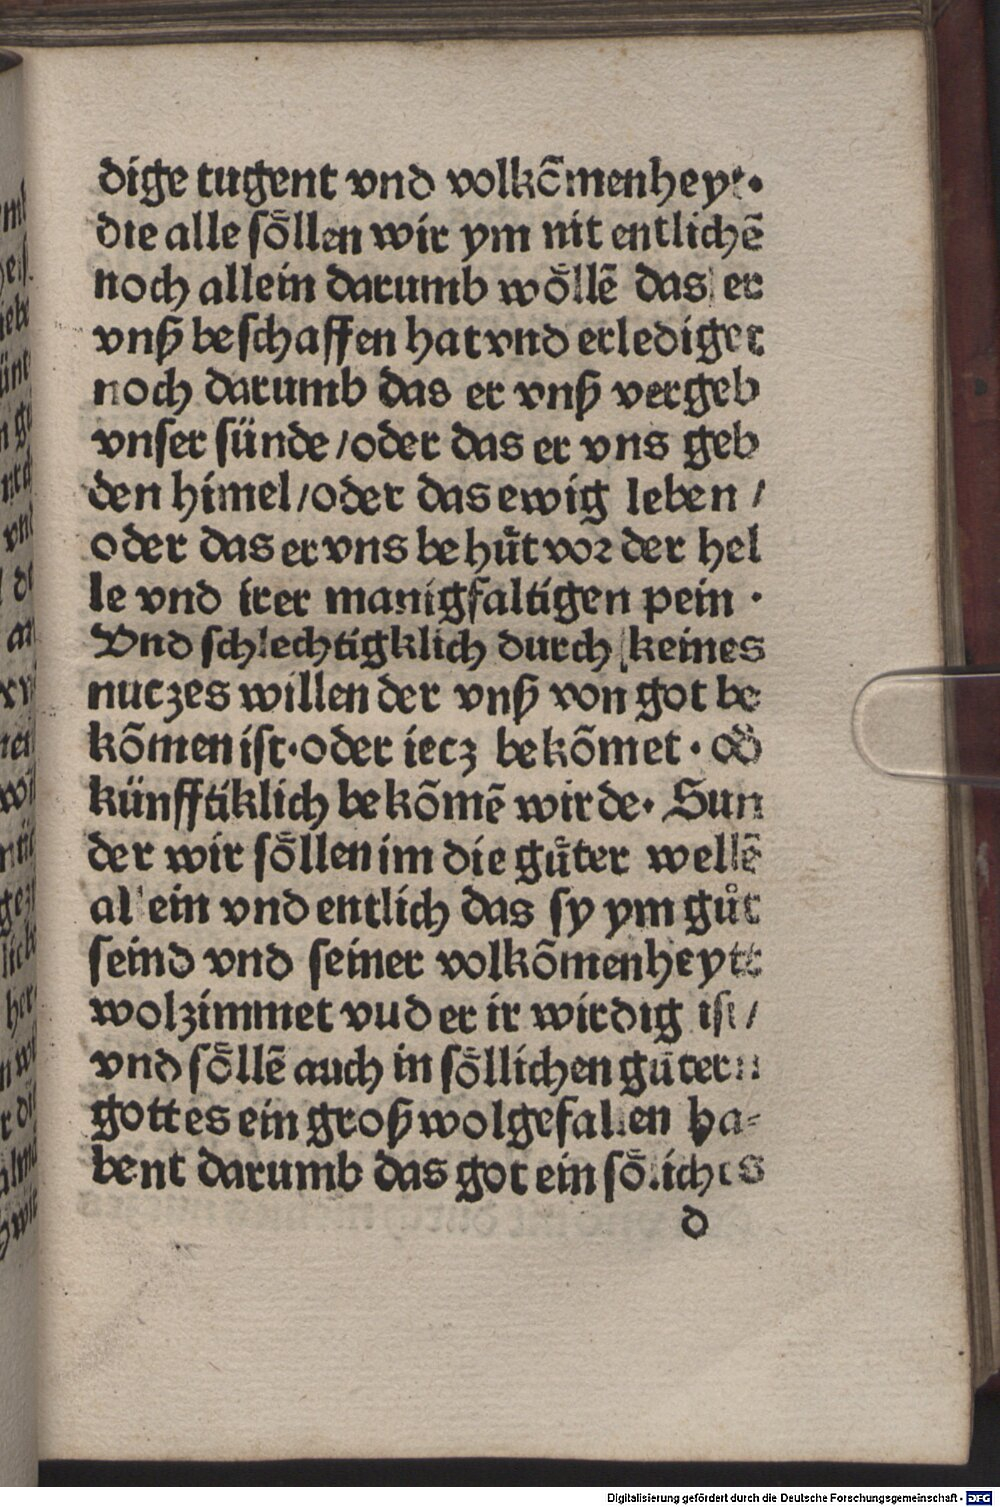 dige tugent vnd volkõmenheyt.
die alle so̊llen wir ym nit entlichẽ
noch allein darumb wo̊llẽ das er
vnß beschaffen hat vnd erlediget
noch darumb das er vnß vergeb
vnser sünde / oder das er vns geb
den himel / oder das ewig leben /
oder das er vns behůt vor der hel
le vnd irer manigfaltigen pein .
Vnd schlechtigklich durch keines
nutzes willen der vnß von got be
kõmen ist. oder ietz bekõmet . od̕
künfftiklich bekõmẽ wirde. Sun
der wir so̊llen im die gůter wellẽ
allein vnd entlich das sy ym gůt
seind vnd seiner volkõmenheytt
wolzimmet vud er ir wirdig ist /
vnd so̊llẽ auch in so̊llichen gůtern
gottes ein groß wolgefallen ha-
bent darumb das got ein so̊liches
d
Digitalisierung gefördert durch die Deutsche Forschungsgemeinschaft - DFG